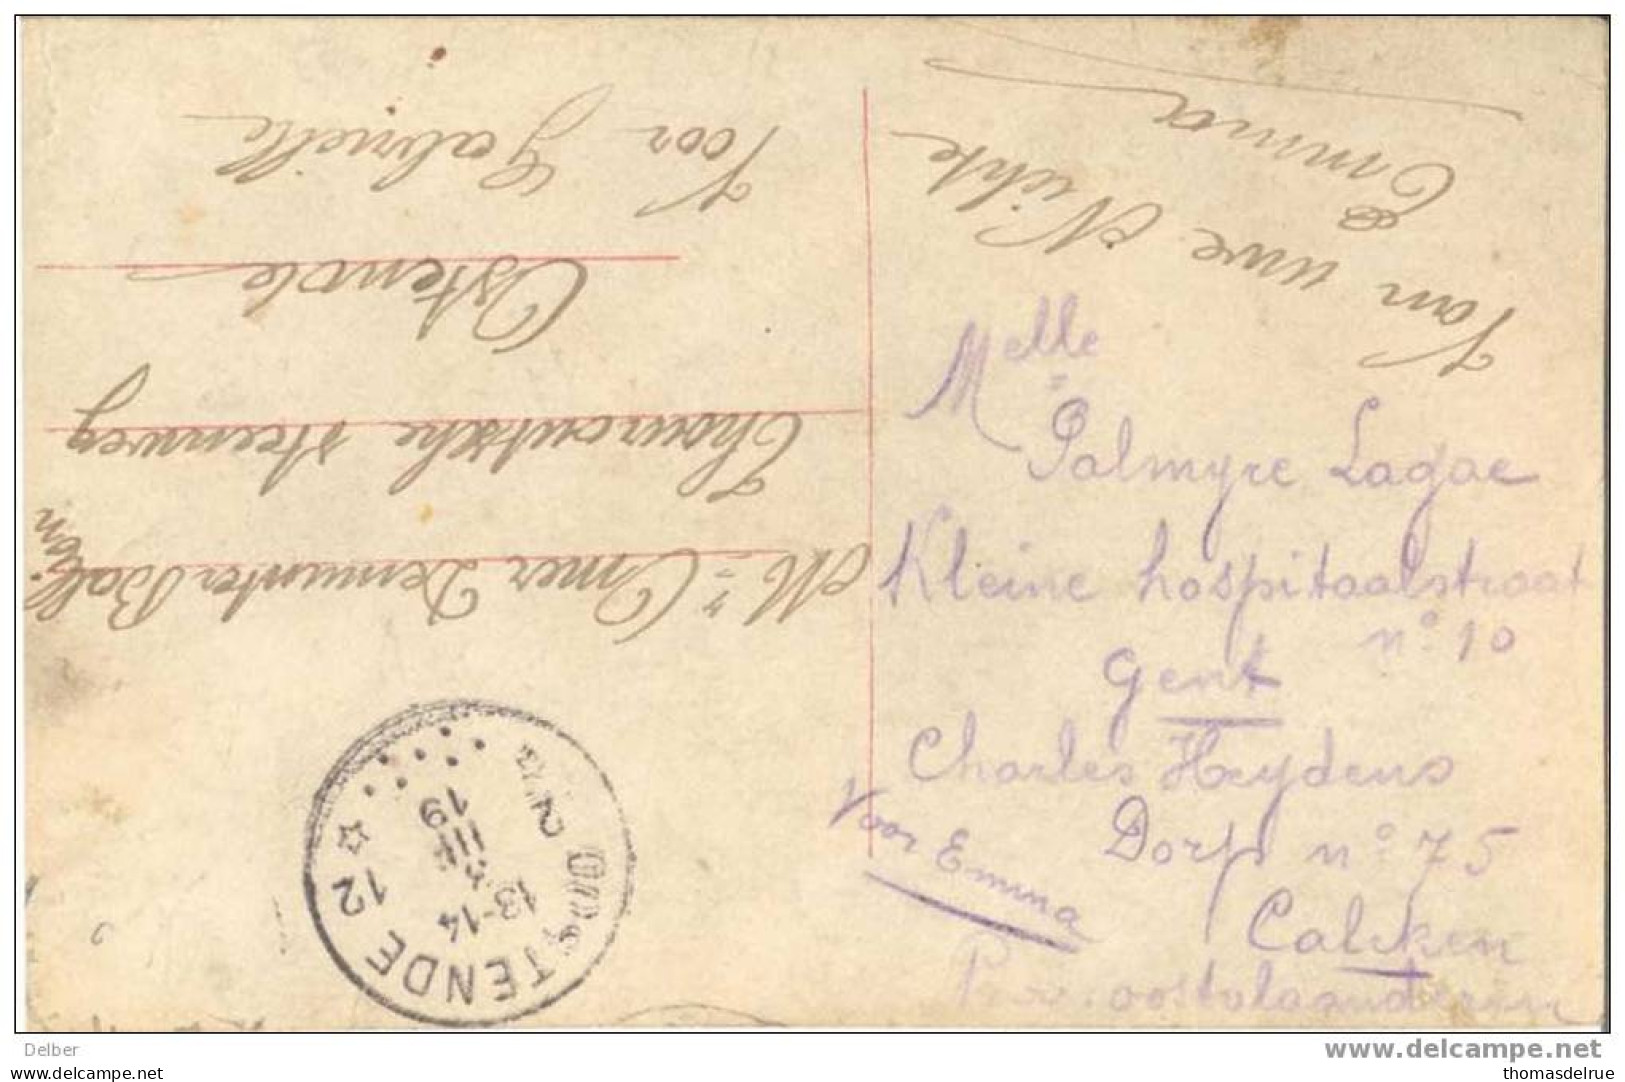 Melle
Palmyre Lagae
Kleine hospitaalstraat
n° 10
Gent
Charles Heydens
Dorp n° 75
Calcken
oostvlaanderen
Voor Emma
Van uwe Nichte
Emma
Voor Gabrielle
Mr Omer Demunter Ballon
Thouroutsche steenweg
Ostende
OOSTENDE 12
13-14
VIII
19
Delber
www.delcampe.net
thomasdelrue